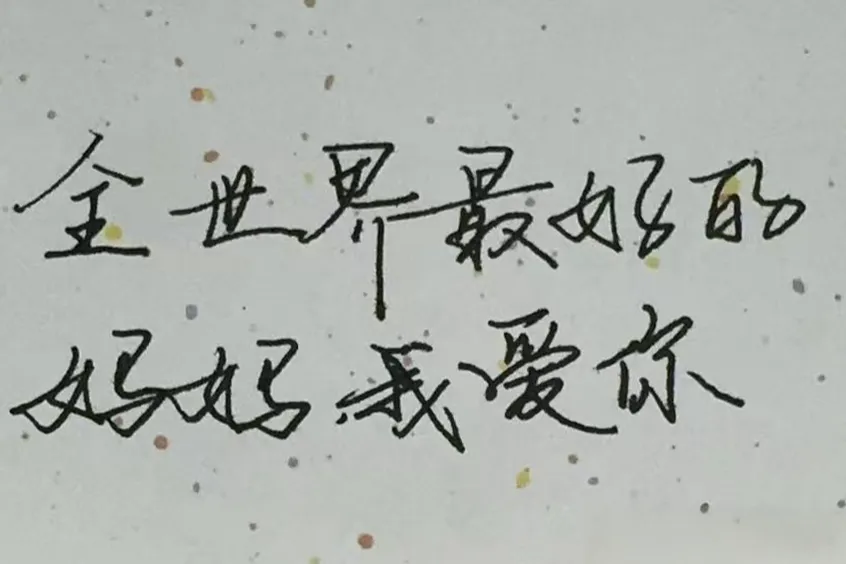 全世界最好的
妈妈我爱你